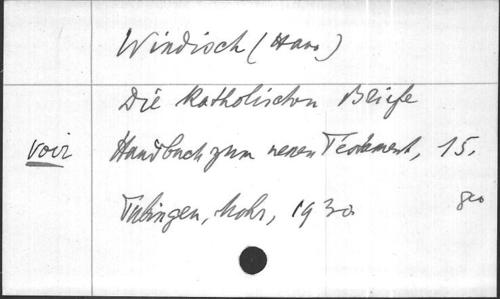 Windisch (Hans)
Die katholischen Briefe
voir Handbuch zum neuen Testament, 15.
Tübingen, Mohr, 1930